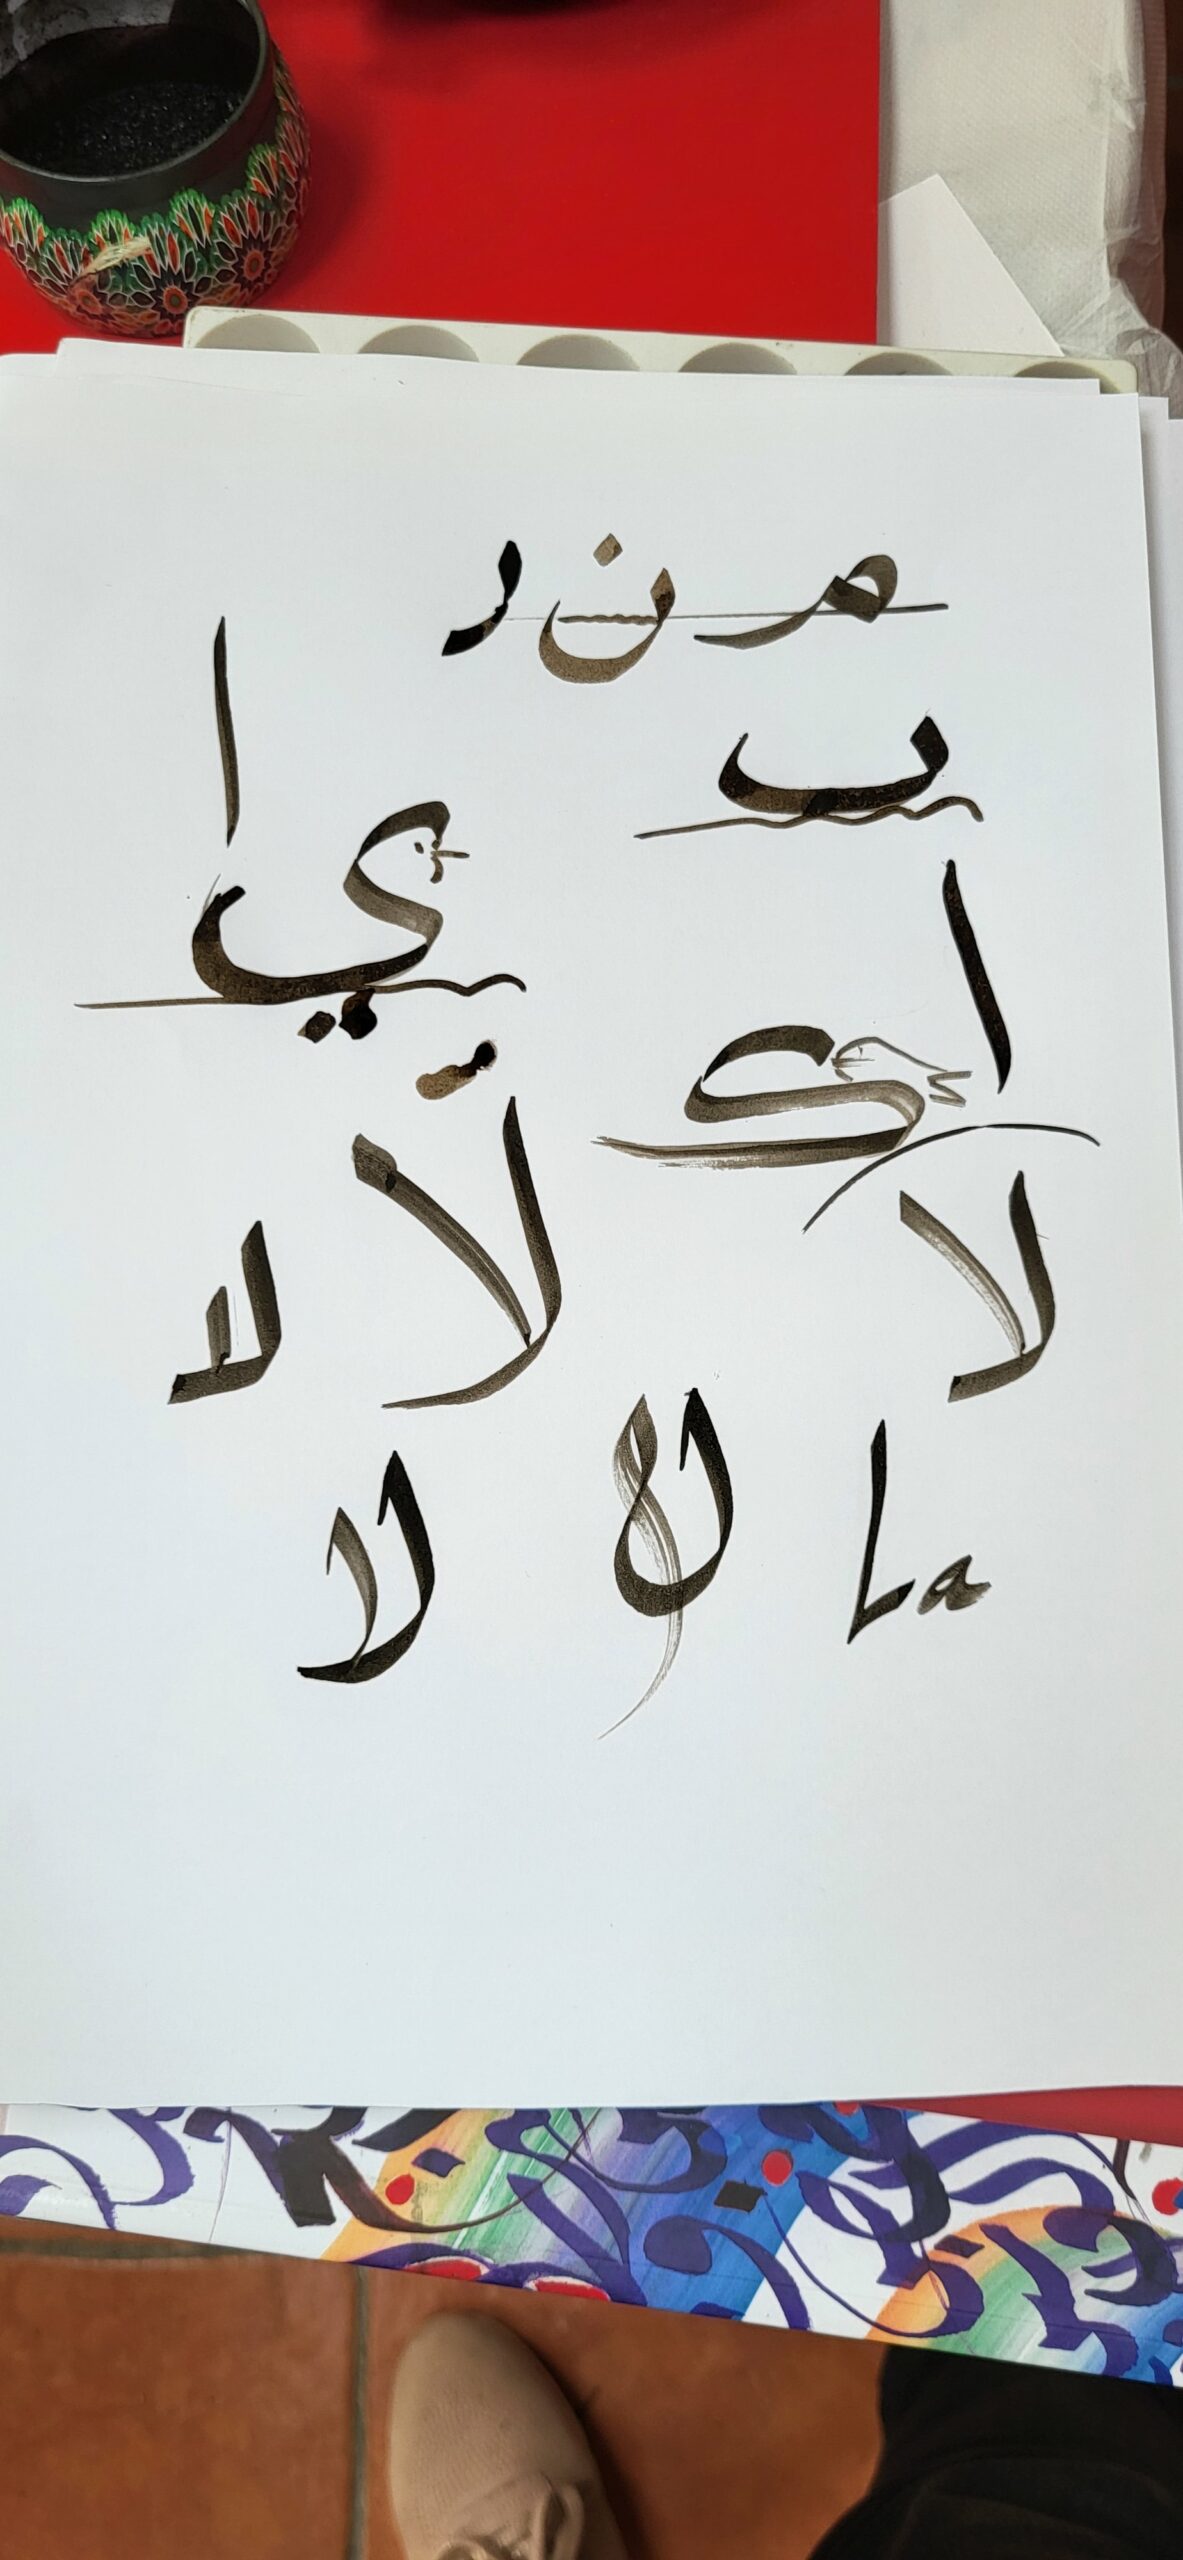 م ن ر
ٮ
ا ي
ا ک
لا لا لا
La لا لا